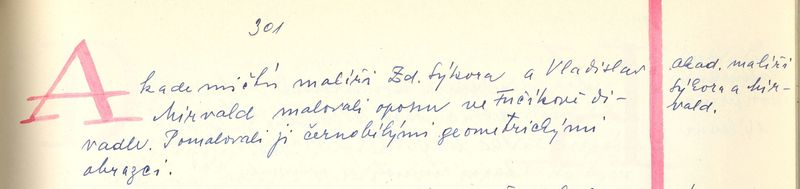 301
Akademičtí malíři Zd. Sýkora a Vladislav
Mirvald malovali oponu ve Fučíkově di-
vadle. Pomalovali ji černobílými geometrickými
obrazci.
akad. malíři
Sýkora a Mir-
vald.